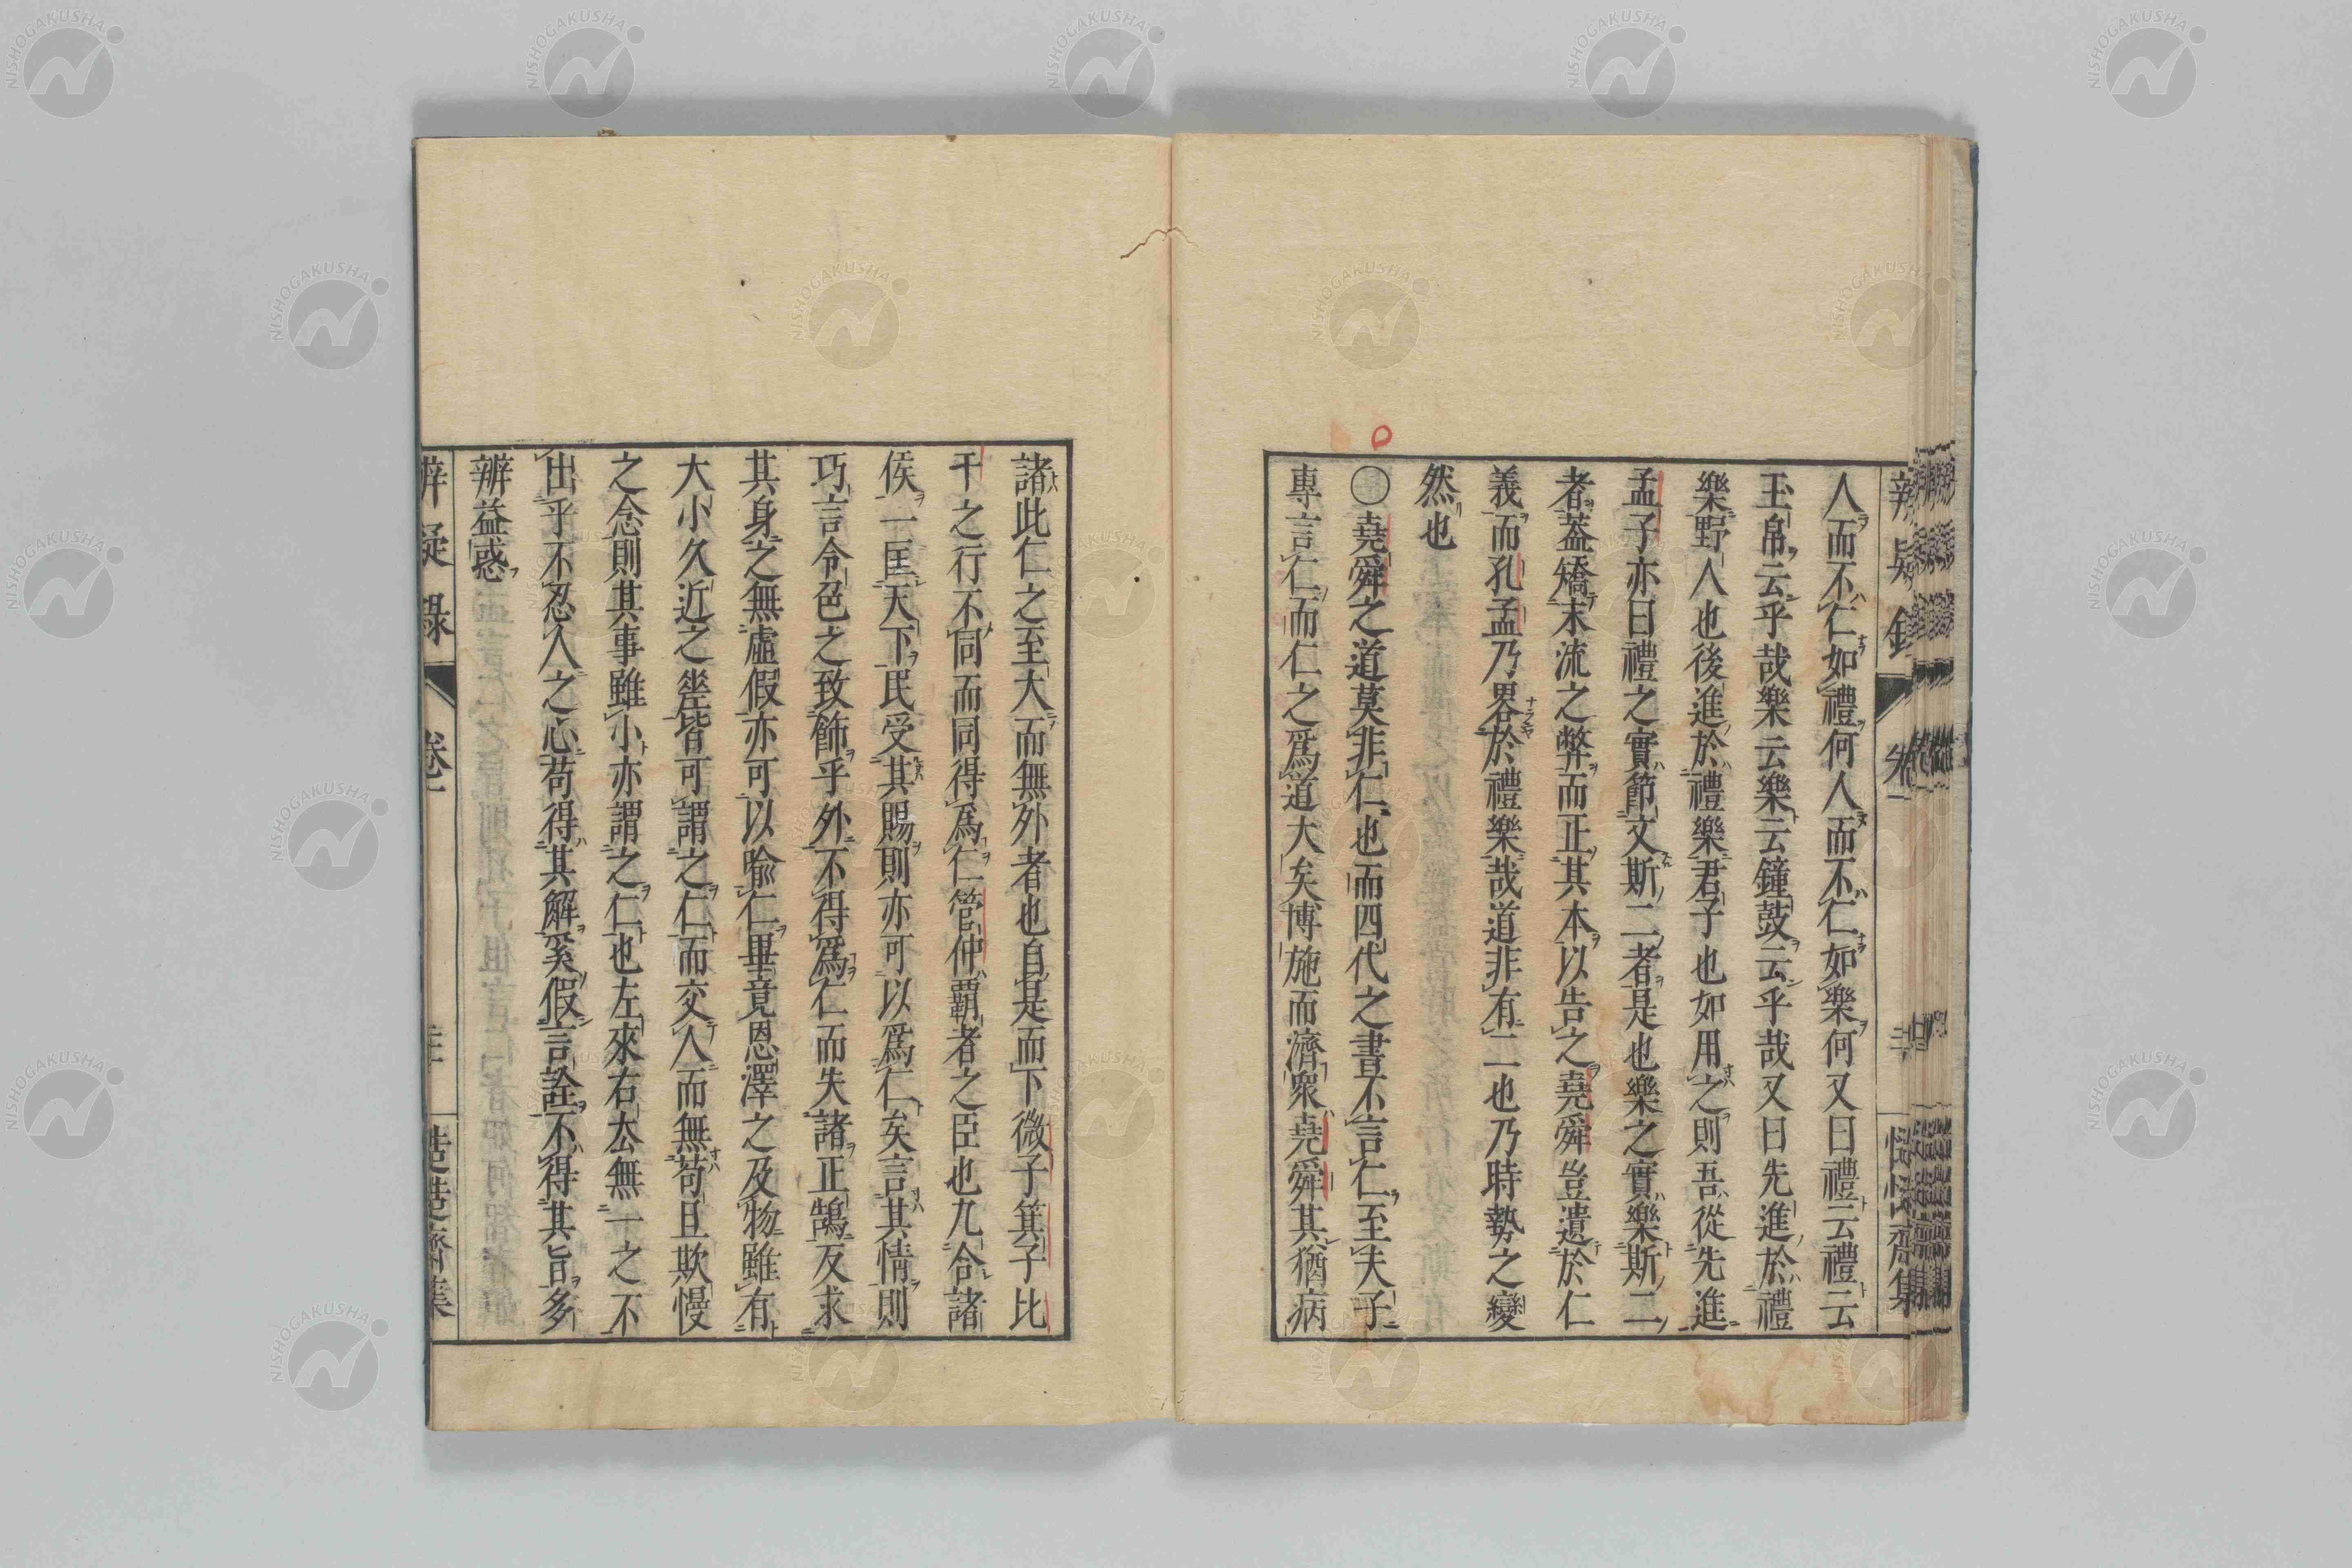 人而不仁如禮何人而不仁如樂何又曰禮云禮云
玉帛云乎哉樂云樂云鐘鼓云乎哉又曰先進於禮
樂野人也後進於禮樂君子也如用之則吾從先進
孟子亦曰禮之實節文斯二者是也樂之實樂斯二
者蓋矯末流之弊而正其本以告之堯舜豈遺於仁
義而孔孟乃畧於禮樂哉道非有二也乃時勢之變
然也
〇堯舜之道莫非仁也而四代之書不言仁至夫子
專言仁而仁之爲道大矣博施而濟衆堯舜其猶病
諸此仁之至大而無外者也自是而下微子箕子比
干之行不同而同得爲仁管仲覇者之臣也九合諸
侯一匡天下民受其賜則亦可以爲仁矣言其情則
巧言令色之致飾乎外不得爲仁而失諸正鵠反求
其身之無虛假亦可以喩仁畢竟恩澤之及物雖有
大小久近之差皆可謂之仁而交人而無苟且欺慢
之念則其事雖小亦謂之仁也左來右去無一之不
出乎不忍人之心苟得其解奚假言詮不得其旨多
辨益惑
辨疑錄 卷一
慥慥齋集
NISHOGAKUSHA